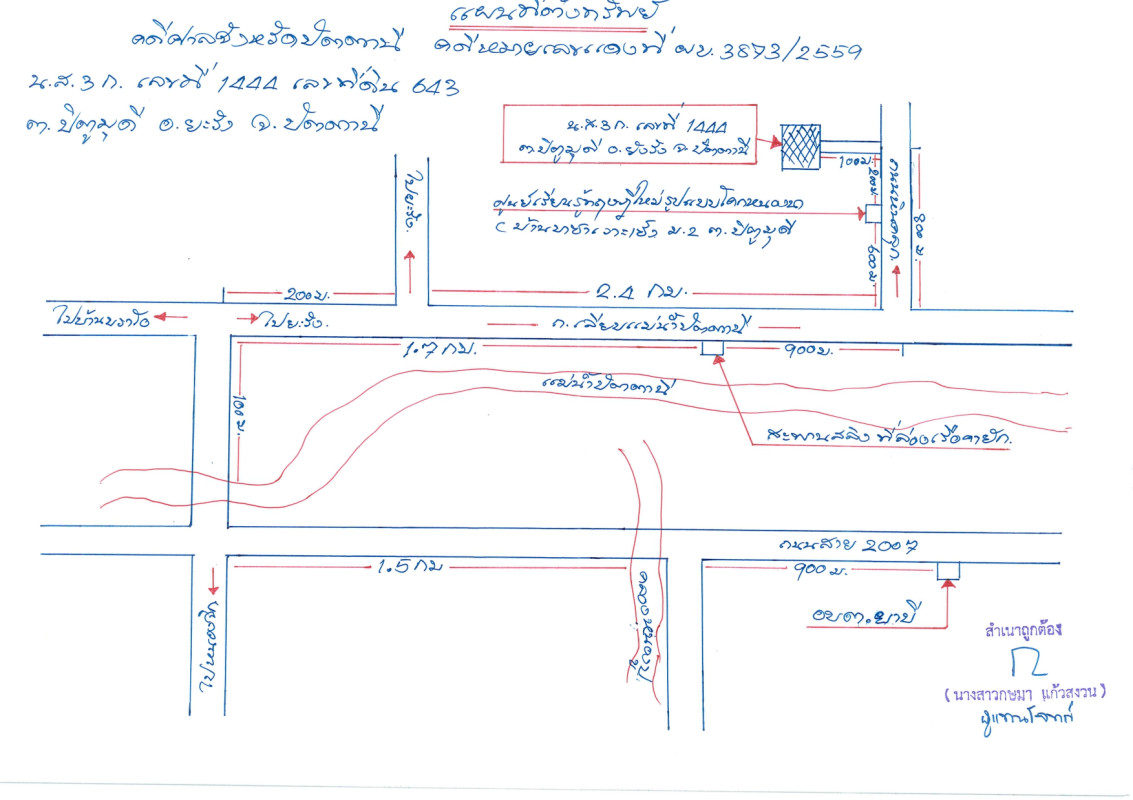 แผนที่ตั้งทรัพย์
คดีศาลจังหวัดปัตตานี คดีหมายเลขแดงที่ ผบ. 3873/2559
น.ส.3 ก. เลขที่ 1444 เลขที่ดิน 643
ต. ปิตูมุดี อ. ยะรัง จ. ปัตตานี
น.ส.3 ก. เลขที่ 1444
ต.ปิตูมุดี อ.ยะรัง จ.ปัตตานี
100 ม.
200 ม.
ศูนย์เรียนรู้ทฤษฎีใหม่รูปแบบโคกหนองนา
ม.2 ต. ปิตูมุดี
600 ม.
800 ม.
ไปยะรัง.
200 ม.
2.4 กม.
ไปยะรัง.
ถ. เลียบแม่น้ำปัตตานี
1.7 กม.
900 ม.
100 ม.
แม่น้ำปัตตานี
สะพานสลิง ที่ล่องเรือคายัก.
ถนนสาย 2007
1.5 กม
900 ม.
อบต.ยาบี
ไปหนองจิก
สำเนาถูกต้อง
(นางสาวกษมา แก้วสงวน)
ผู้แทนโจทก์